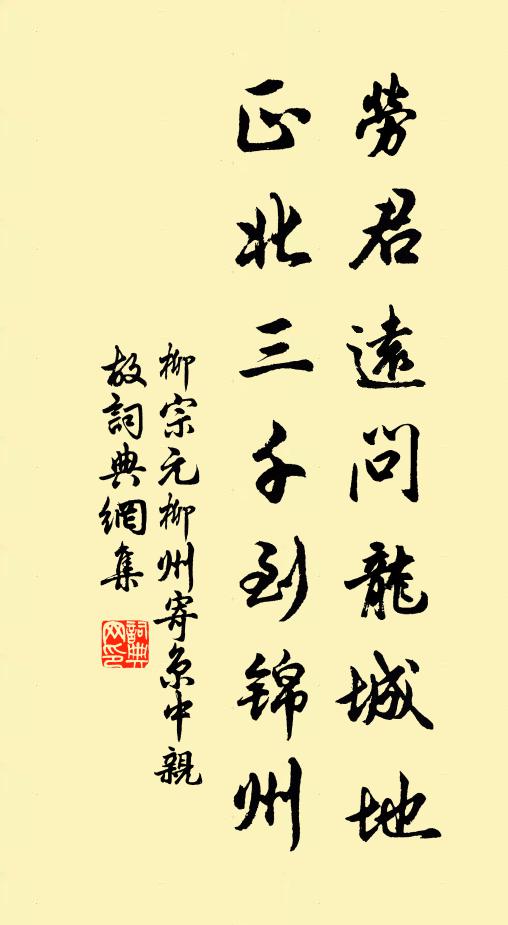 勞君遠問龍城地
正北三千到錦州
柳宗元柳州寄京中親
故詞典網集
詞典
网印